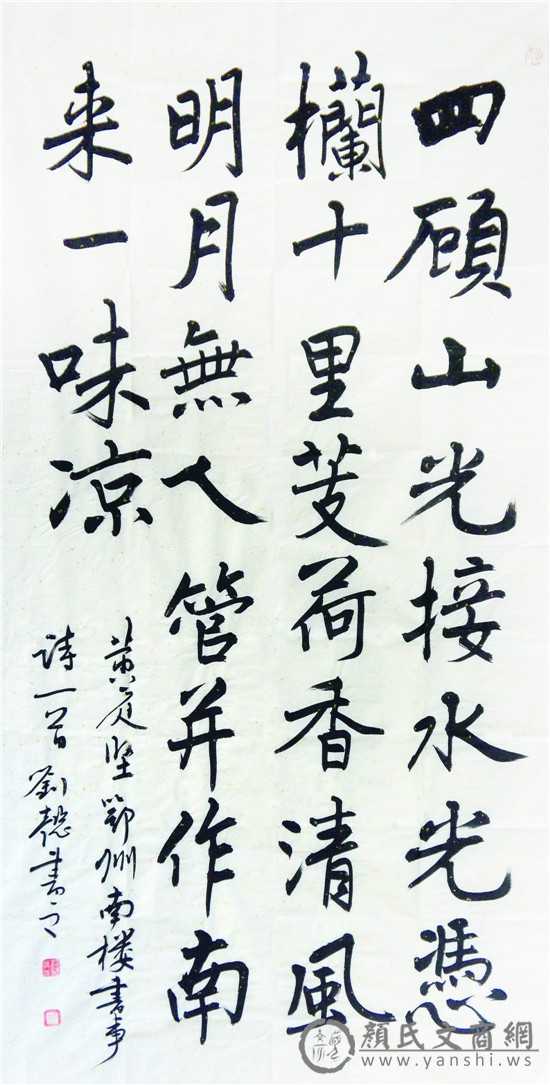 四顾山光接水光憑
欄十里芰荷香清風
明月無人管并作南
来一味凉
黄庭坚鄂州南楼書事
詩一首 劉懿書之
顔氏文商網
www.yanshi.ws